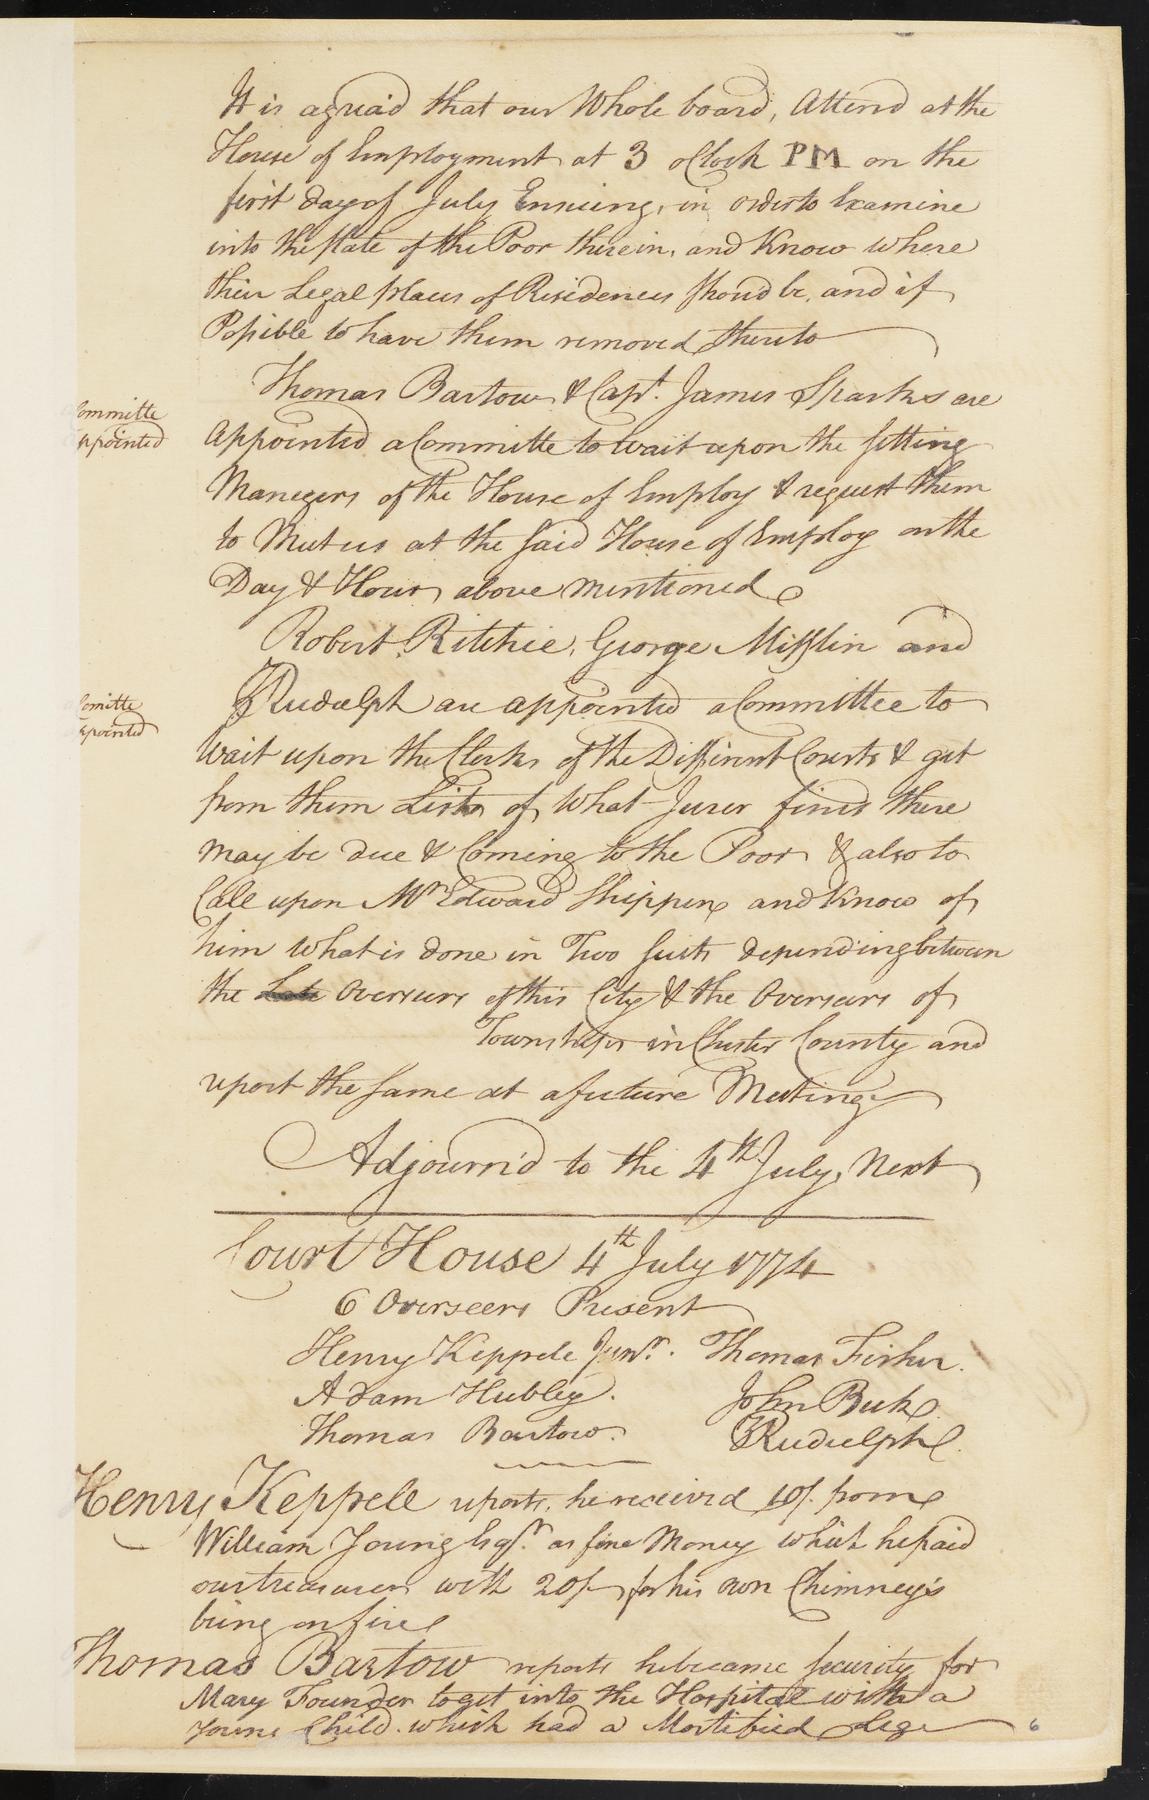 It is agreaid that our Whole board, Attend at the
House of Employment at 3 oClock PM on the
first day of July Ensuing, in order to Examine
into the state of the Poor therein, and Know where
their Legal places of Residences shoud be, and if
Possible to have them removed thereto
Thomas Bartow & Capt. James Sparks are
Committe
Appointed a Committe to wait upon the sitting
appointed
Manegers of the House of Employ & request them
to Meet us at the said House of Employ on the
Day & Hour above mentioned
Robert Ritchie, George Mifflin and
Comitte
Rudulph are appointed a Committee to
apointed
Wait upon the Clerks of the Different Courts & get
from them Lists of What Jurer fines there
may be due & Coming to the Poor & also to
Call upon Mr Edward Shippen and Know of
him what is done in Two suits depending between
the Late Overseers of this City & the Overseers of
Townships in Chester County and
report the same at a future Meeting
Adjourn'd to the 4th July Next
Court House 4th July 1774
6 Overseers Present
Henry Keppele Junr. Thomas Fisher.
Adam Hubley. John Buk
Thomas Bartow. Rudulph.
Henry Keppele reports, he received 10/. from
William Young Esqr. as fine Money which he paid
our treasurer with 20/- for his own Chimney's
being on fire
Thomas Bartow reports he became security for
Mary Founder to get into the Hospital with a
Young Child. which had a Mortified Lege
6